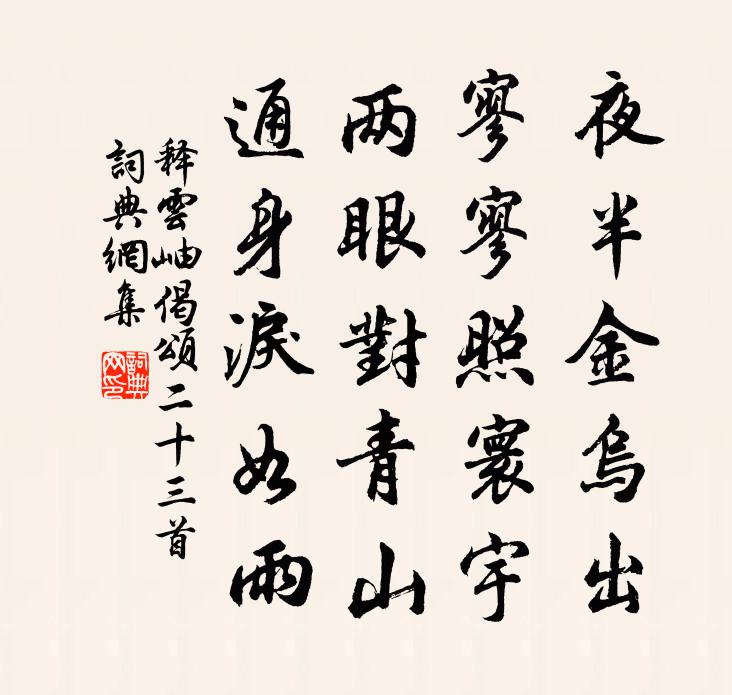 夜半金烏出
寥寥照寰宇
两眼對青山
通身淚如雨
释雲岫偈頌二十三首
詞典網集
詞典網印